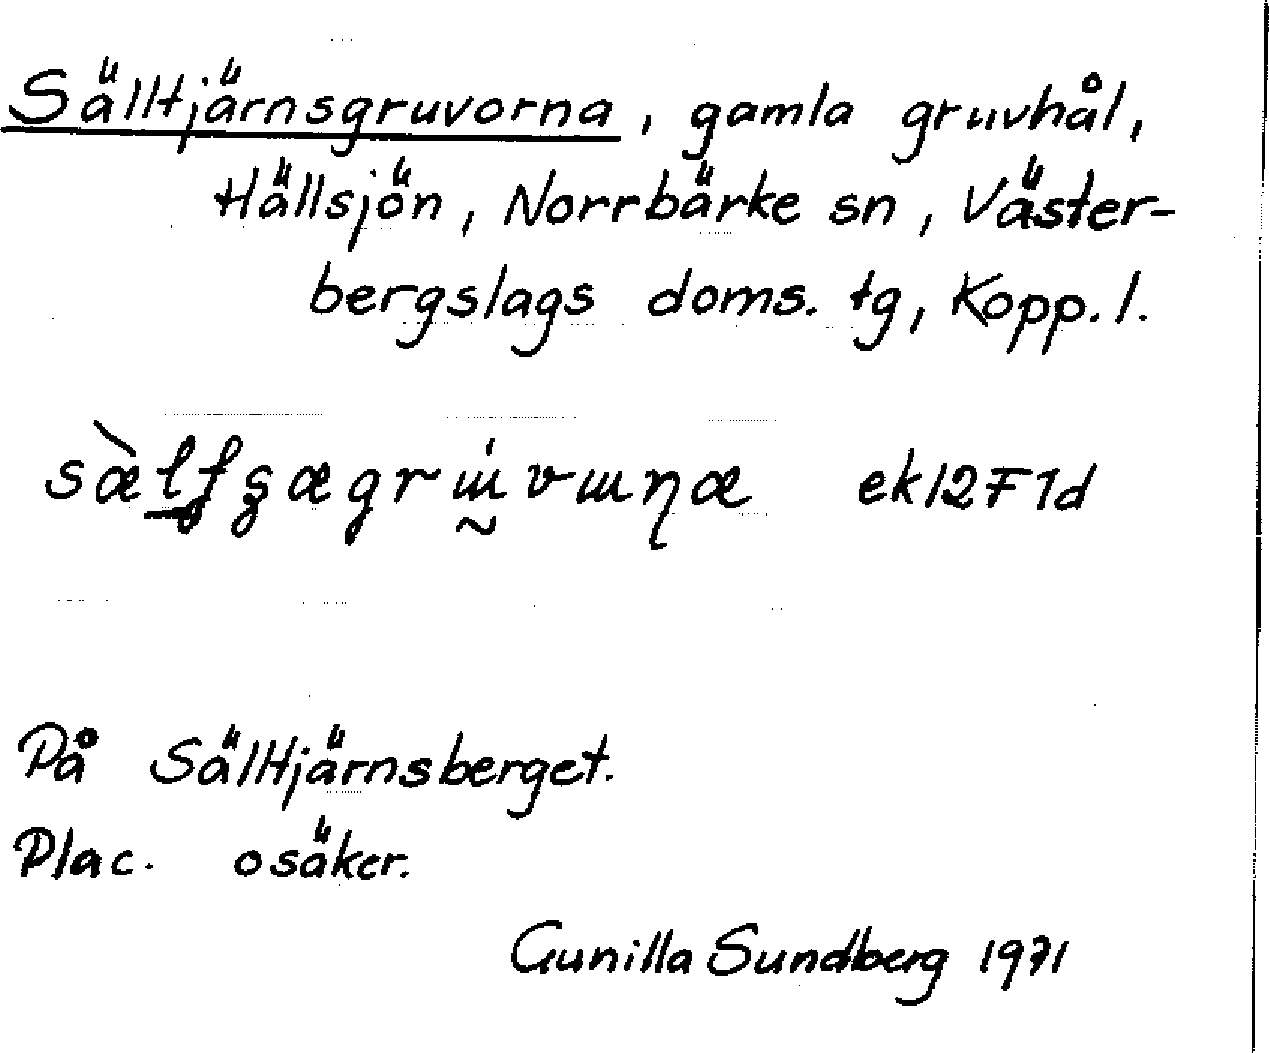 Sälltjärnsgruvorna, gamla gruvhål,
Hällsjön, Norrbärke sn, Väster-
bergslags doms. tg, Kopp. l.
ek12F1d
På Sälltjärnsberget.
Plac. osäker.
Gunilla Sundberg 1971